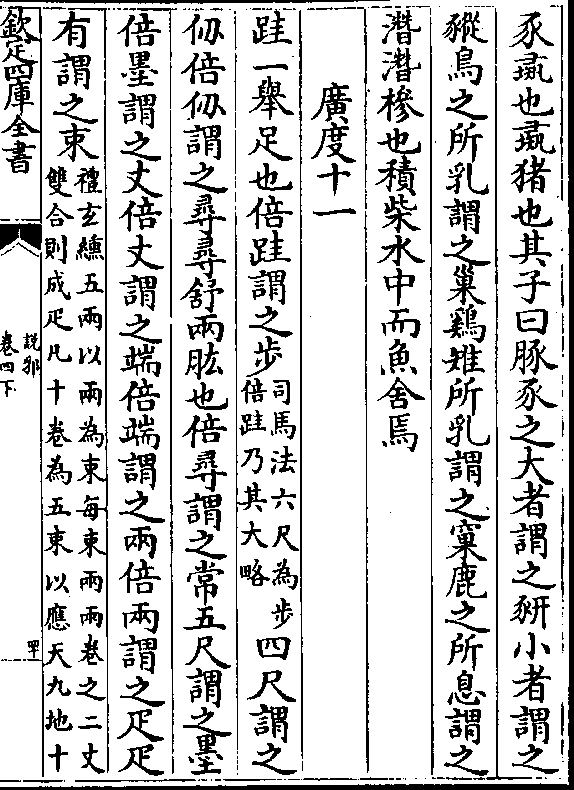 豕彘也彘猪也其子曰豚豕之大者謂之豜小者謂之
豵鳥之所乳謂之巢鷄雉所乳謂之窠鹿之所息謂之
潛潛槮也積柴水中而魚舍焉
廣度十一
跬一舉足也倍跬謂之步司馬法六尺為步倍跬乃其大略四尺謂之
仭倍仭謂之尋尋舒兩肱也倍尋謂之常五尺謂之墨
倍墨謂之丈倍丈謂之端倍端謂之兩倍兩謂之疋疋
有謂之束禮玄纁五兩以兩為束每束兩兩卷之二丈雙合則成疋凡十卷為五束以應天九地十
欽定四庫全書
說郛
卷四下